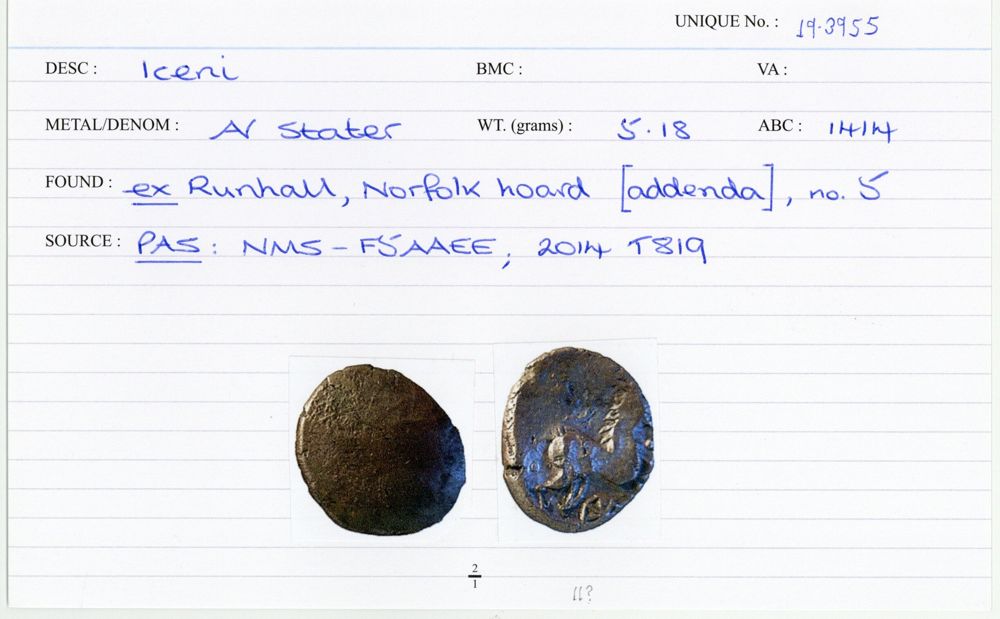 UNIQUE No. : 19.3955
DESC : Iceni BMC : VA :
METAL/DENOM : AV Stater WT. (grams) : 5.18 ABC : 1414
FOUND : ex Runhall, Norfolk hoard [addenda], no. 5
SOURCE : PAS : NMS - F5AAEE, 2014 T819
2
1
11?